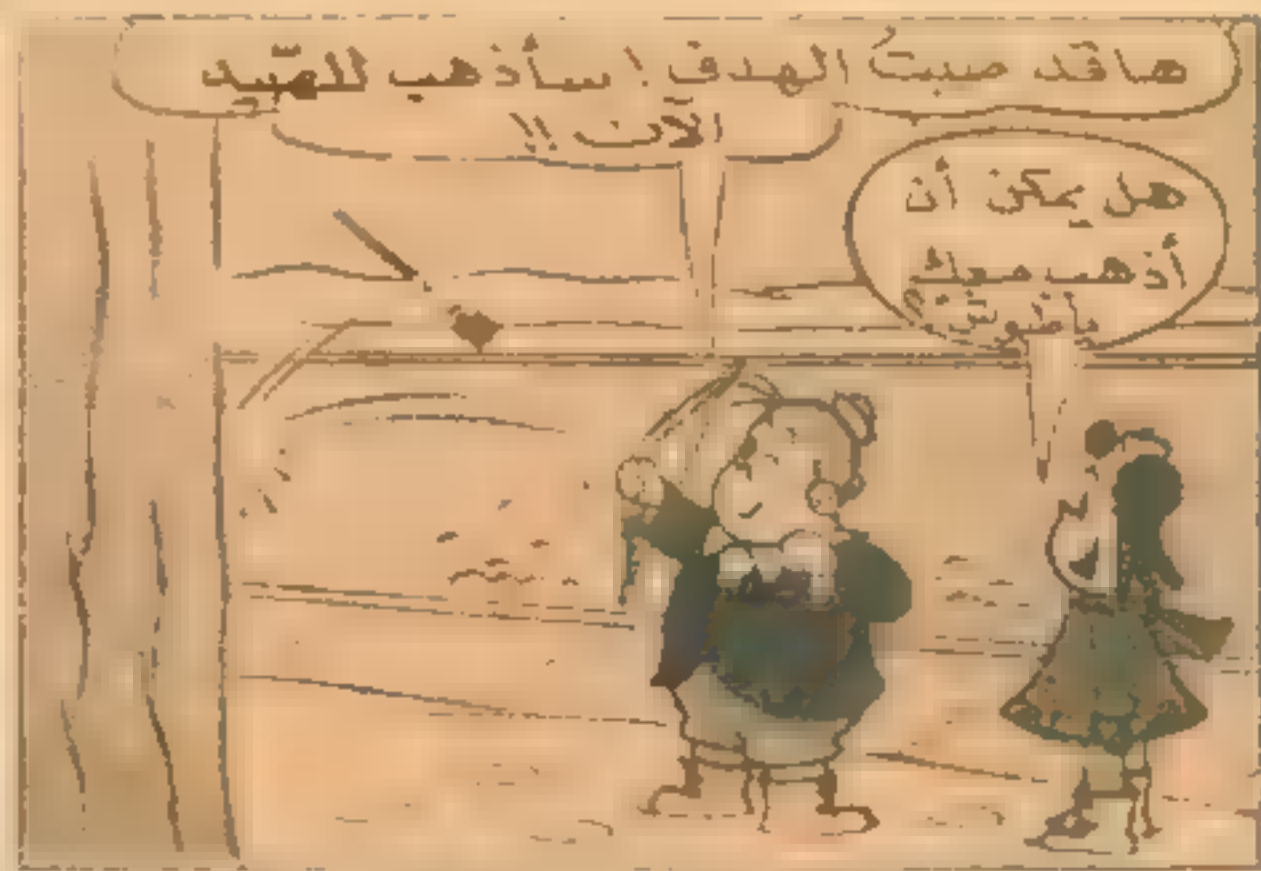 ها قد صببتُ الهدف ! سأذهب للصّيد
الآن !!
هل يمكن أن
أذهب معك